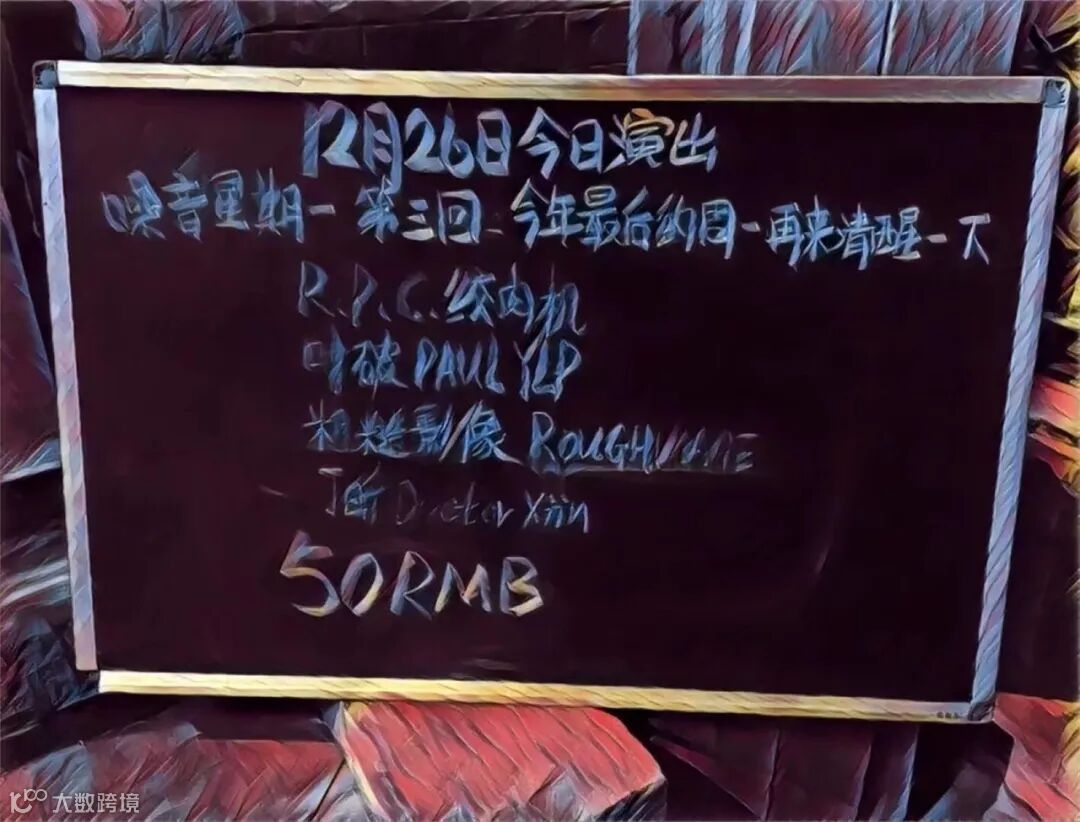 12月26日今日演出
噪音星期一 第三回：今年最后的周一再来清醒一下
R.P.C.绞肉机
叶破 PAUL YEP
粗糙影像 ROUGH
丁昕 Doctor Xiin
50RMB
大数跨境